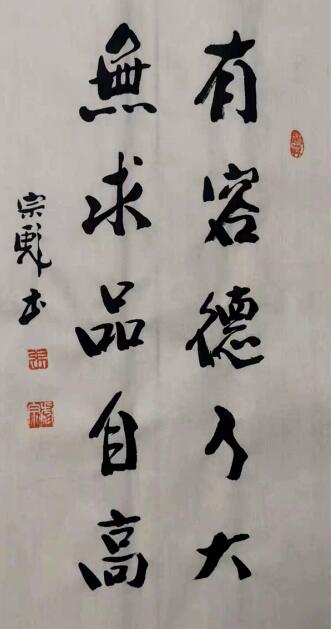 有容德乃大
無求品自高
宗彪书